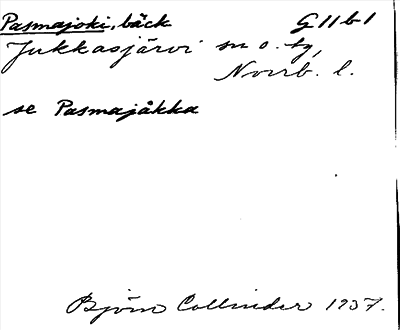 Pasmajoki, bäck G 11 b 1
Jukkasjärvi sn o. tg,
Norrb. l.
se Pasmajåkka
Björn Collinder 1937.